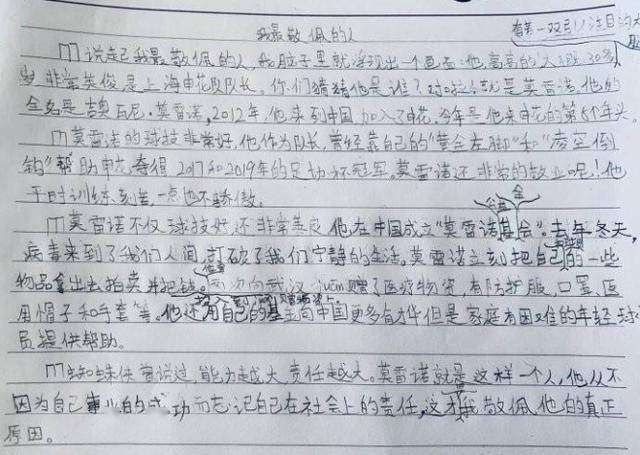 我最敬佩的人
有着一双引人注目的大
说起我最敬佩的人,我脑子里就浮现出一个画面:他高高的个子,30多
岁,非常英俊,是上海申花队队长。你们猜猜他是谁?对啦!就是莫雷诺,他的
全名是吉奥瓦尼·莫雷诺,2012年,他来到中国,加入了申花,今年是他来申花的第8个年头。
莫雷诺的球技非常好,他作为队长,曾经靠自己的“黄金左脚”和“凌空倒
钩”帮助申花夺得2017和2019年的足协杯冠军。莫雷诺还非常的敬业呢!他
平时训练刻苦,一点也不骄傲。
公益 金
莫雷诺不仅球技好,还非常善良,他在中国成立“莫雷诺基会”。去年冬天,
病毒来到了我们人间,打破了我们宁静的生活,莫雷诺立刻把自己的一些
物品拿出去拍卖,并把钱 两次向武汉juān赠了医疗物资,有防护服、口罩、医
用帽子和手套等。他还用自己的基金向中国更多有才华但是家庭有困难的年轻球
员提供帮助。
蜘蛛侠曾说过,能力越大,责任越大。莫雷诺就是这样一个人,他从不
因为自己事业的成功而忘记自己在社会上的责任,这才我敬佩他的真正
原因。